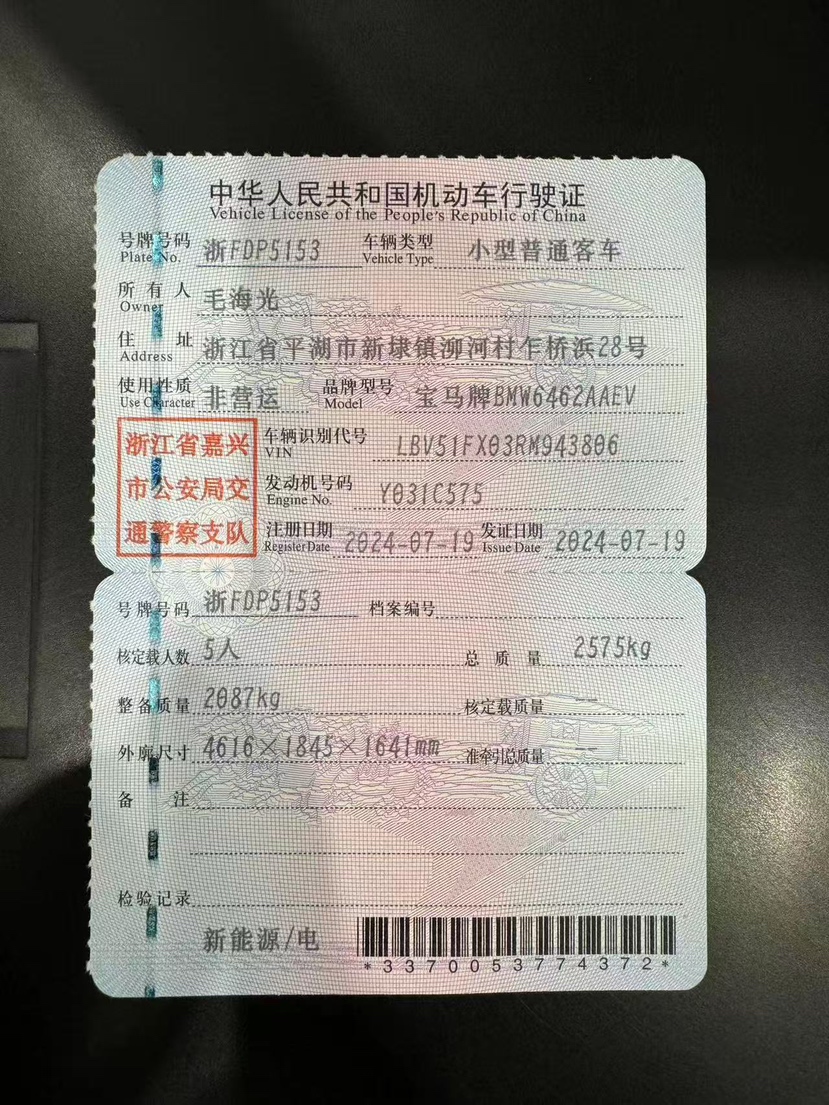 中华人民共和国机动车行驶证
Vehicle License of the People's Republic of China
号牌号码 Plate No. 浙FDP5153 车辆类型 Vehicle Type 小型普通客车
所有人 Owner 毛海光
住址 Address 浙江省平湖市新埭镇泖河村乍桥浜28号
使用性质 Use Character 非营运 品牌型号 Model 宝马牌BMW6462AAEV
浙江省嘉兴
市公安局交
通警察支队
车辆识别代号 VIN LBV51FX03RM943806
发动机号码 Engine No. Y031C575
注册日期 Register Date 2024-07-19 发证日期 Issue Date 2024-07-19
号牌号码 浙FDP5153 档案编号
核定载人数 5人 总质量 2575kg
整备质量 2087kg 核定载质量 --
外廓尺寸 4616×1845×1641mm 准牵引总质量 --
备注
检验记录
新能源/电
*3370053774372*